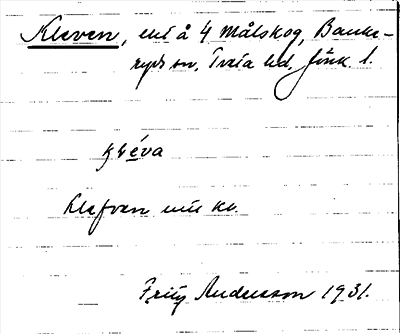 Kleven, uti å 4 Målskog, Banke-
ryds sn, Tveta hd, Jönk. l.
kléva
Klefven uti kl.
Fritz Andersson 1931.